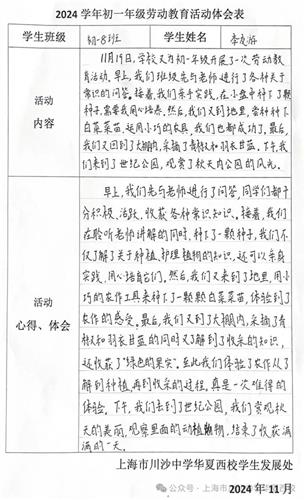 2024学年初一年级劳动教育活动体会表
学生班级 初一8班 学生姓名
活动
内容
11月19日,学校又为初一年级开展了一次劳动教
育活动。早上,我们班级先与老师进行了各种关于
常识的问答。接着,我们亲手实践,在小盆中种下了颗
种子,需要我用心培养。然后,我们又到地里,尝种种下
白菜菜苗,运用小巧的农具,我们也都成功了。最后,
我们又回到了大棚内,采摘了青椒和羽衣甘蓝。下午,我
们来到了世纪公园,观赏了秋天内公园的风光。
活动
心得、体会
早上,我们先与老师进行了问答,同学们都十
分积极、活跃,收获各种常识知识。接着,我们
在聆听老师讲解的同时,种下了一颗种子,我们不
仅了解关于种植、护理植物的知识,还可以亲身
实践,用心培自它们。然后,我们又来到了地里,用小
巧的农作工具来种下了一颗颗白菜菜苗,体验到了
农作的感受。最后,我们又到了大棚内,采摘了青
椒和羽衣甘蓝的同时又了解到了收采的知识,
还收获了“绿色的果实”。至此我们体验了农作从了
解到种植再到收采的过程,真是一次难得的
体验。下午,我们去到了世纪公园,我们赏观秋
天的美丽,观察里面的动植物,结束了收获满
满的一天。
上海市川沙中学华夏西校学生发展处
2024年11月
公众号·上海市